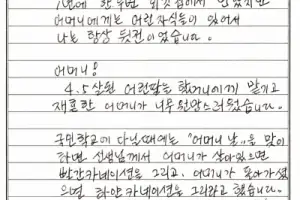 1년에 한두번 외갓집에서 만났지만
어머니에게는 어린자식들이 있어서
나는 항상 뒷전이었습니다.
어머니!
4.5살된 어린딸을 할머니에게 맡기고
재혼한 어머니가 너무 원망스러웠습니다.
국민학교에 다닐때에는 "어머니 날"을 맞이
하면 선생님께서 어머니가 살아있으면
빨간카네이션을 그리고, 어머니가 돌아가셨
으면 하얀 카네이션을 그리라고 했습니다.